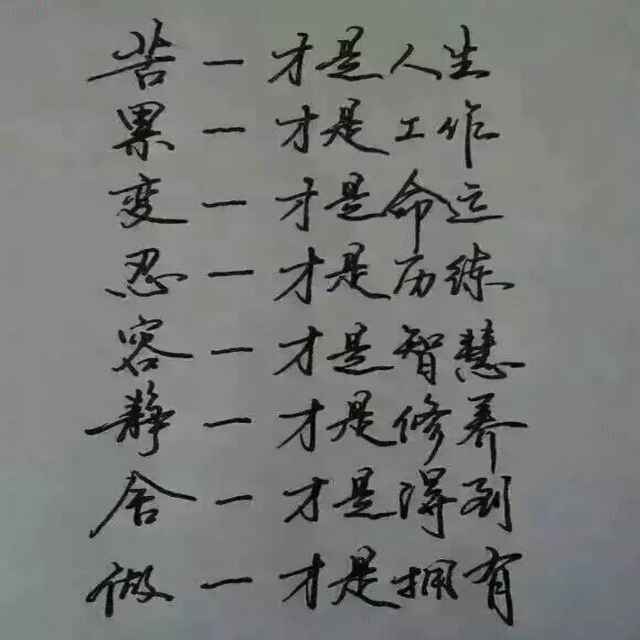 苦一才是人生
累一才是工作
变一才是命运
忍一才是历练
容一才是智慧
静一才是修养
舍一才是得到
做一才是拥有